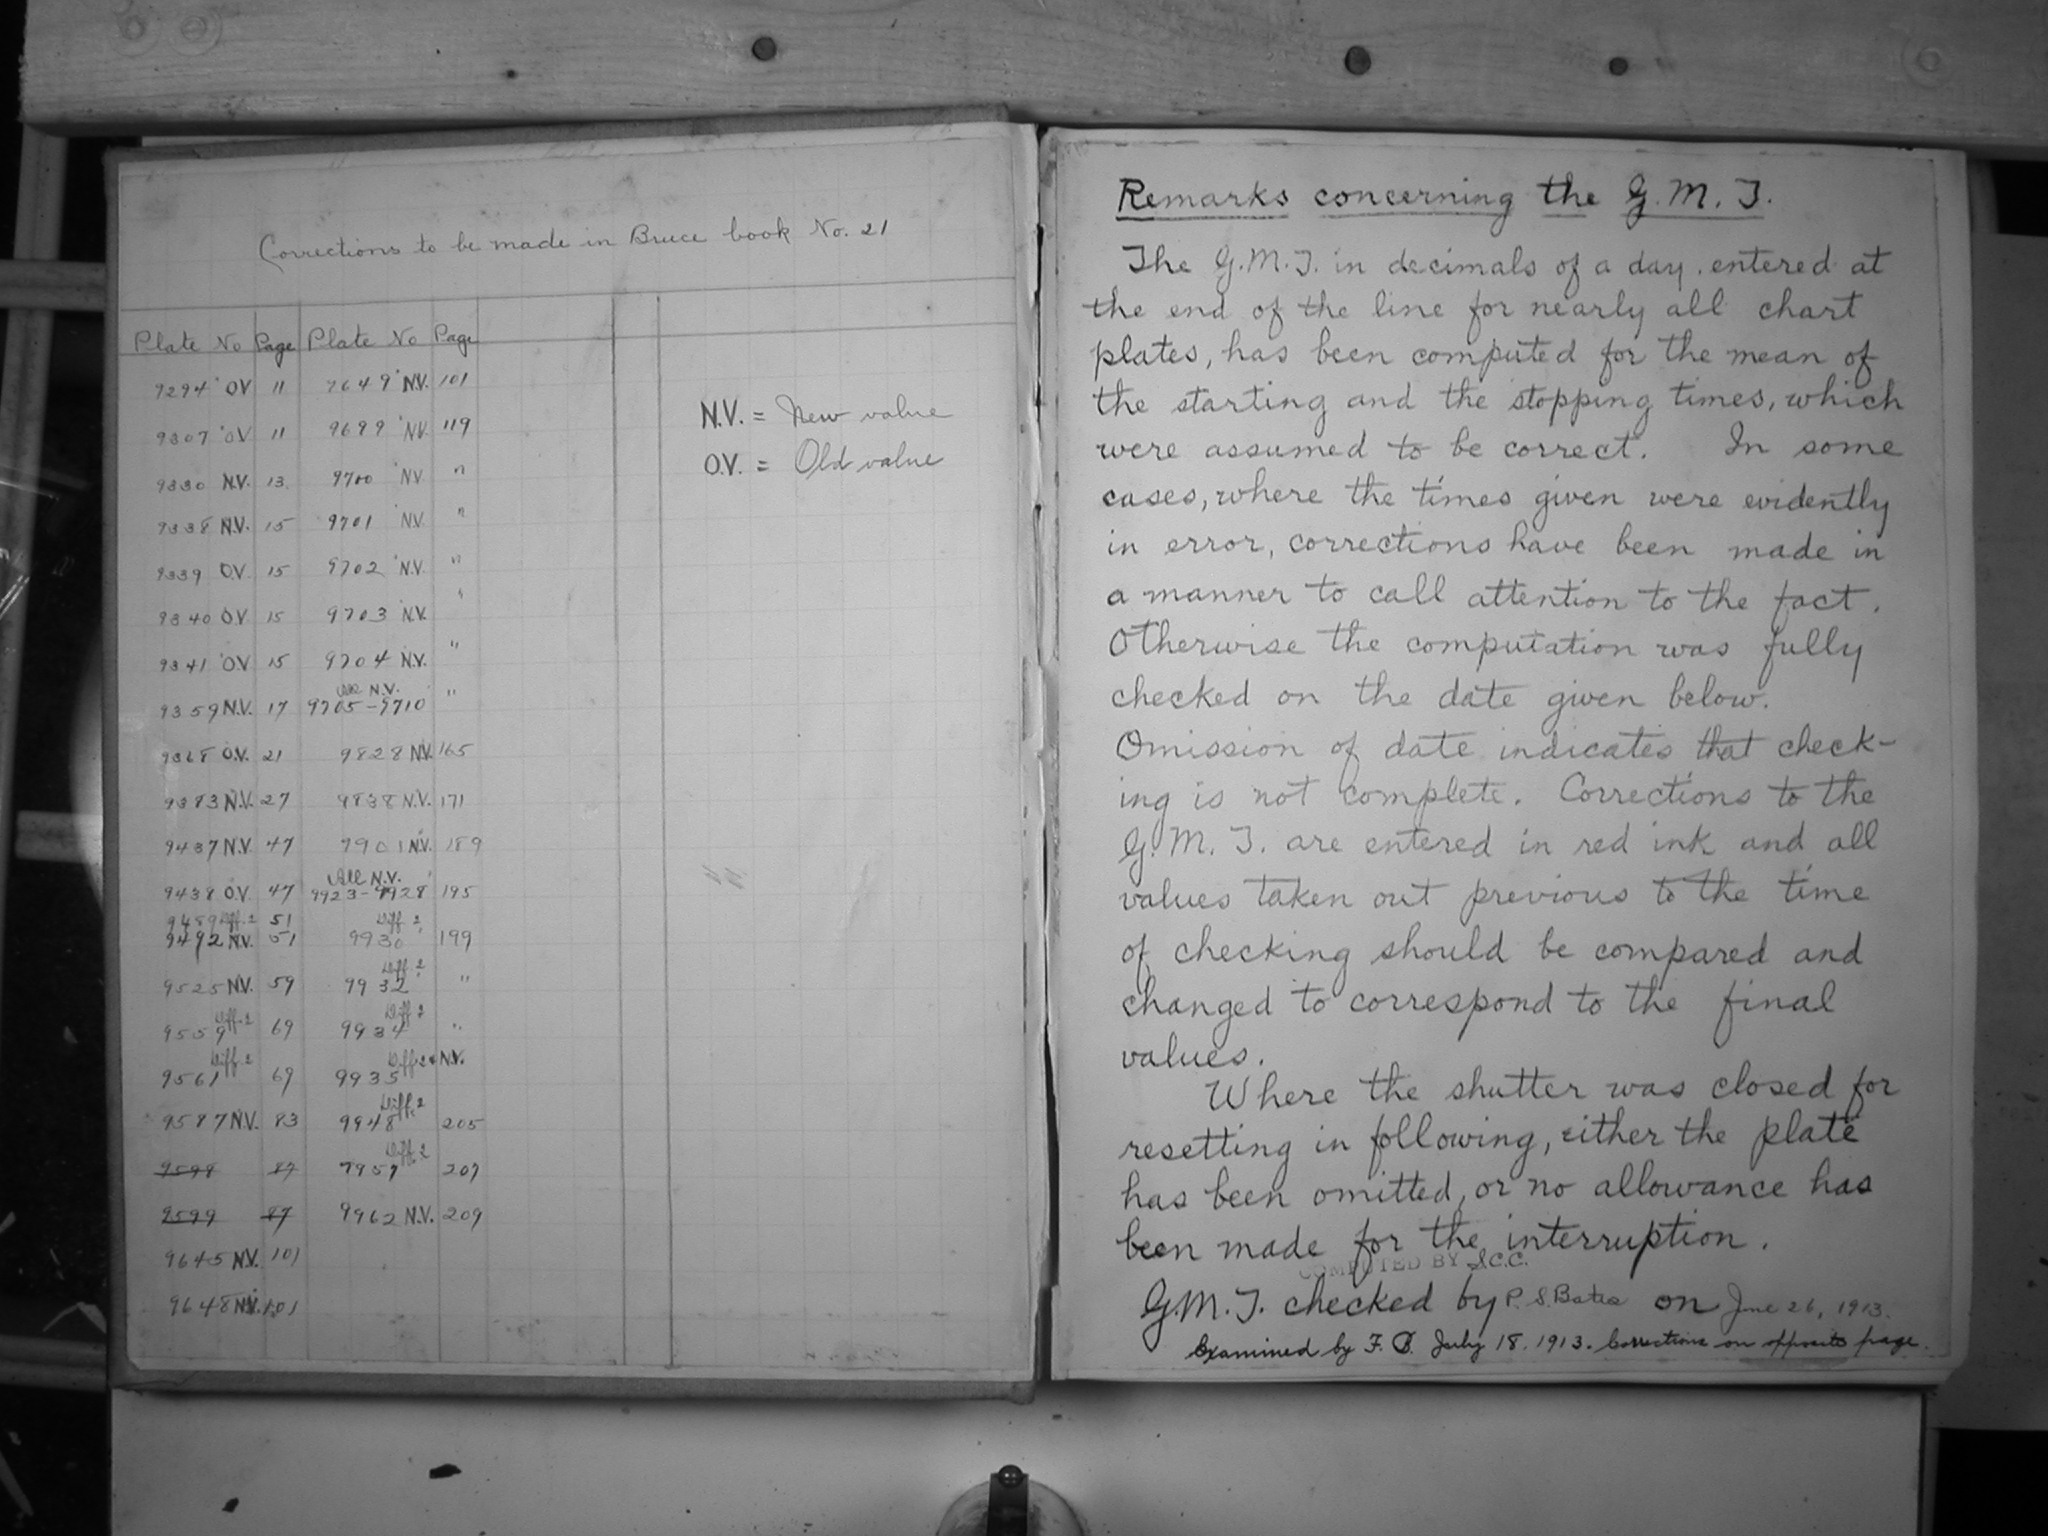 Corrections to be made in Bruce book No. 21
Plate No Page Plate No Page
9294 O.V. 11 9649 N.V. 101
9307 O.V. 11 9699 N.V. 119
9330 N.V. 13 9700 N.V. "
9338 N.V. 15 9701 N.V. "
9339 O.V. 15 9702 N.V. "
9340 O.V. 15 9703 N.V. "
9341 O.V. 15 9704 N.V. "
All N.V.
9359 N.V. 17 9705-9710 "
9368 O.V. 21 9828 N.V. 165
9383 N.V. 27 9838 N.V. 171
9437 N.V. 47 9901 N.V. 189
All N.V.
9438 O.V. 47 9923-9928 195
9489 Diff. 2 51 Diff. 2
9492 N.V. 51 9930 199
Diff. 2
9525 N.V. 59 9932 "
Diff. 2 Diff. 2
9559 69 9934 "
Diff. 2 Diff. 2 & N.V.
9561 69 9935
Diff. 2
9587 N.V. 83 9948 205
Diff. 2
9598 87 7957 207
9599 87 9962 N.V. 209
9645 N.V. 101
9648 N.V. 101
N.V. = New value
O.V. = Old value
Remarks concerning the G.M.T.
The G.M.T. in decimals of a day, entered at
the end of the line for nearly all chart
plates, has been computed for the mean of
the starting and the stopping times, which
were assumed to be correct. In some
cases, where the times given were evidently
in error, corrections have been made in
a manner to call attention to the fact.
Otherwise the computation was fully
checked on the date given below.
Omission of date indicates that check-
ing is not complete. Corrections to the
G.M.T. are entered in red ink and all
values taken out previous to the time
of checking should be compared and
changed to correspond to the final
values.
Where the shutter was closed for
resetting in following, either the plate
has been omitted, or no allowance has
been made for the interruption.
COMPUTED BY S.C.C.
G.M.T. checked by P. S. Bates on June 26, 1913.
Examined by F. B. July 18. 1913. Corrections on opposite page.